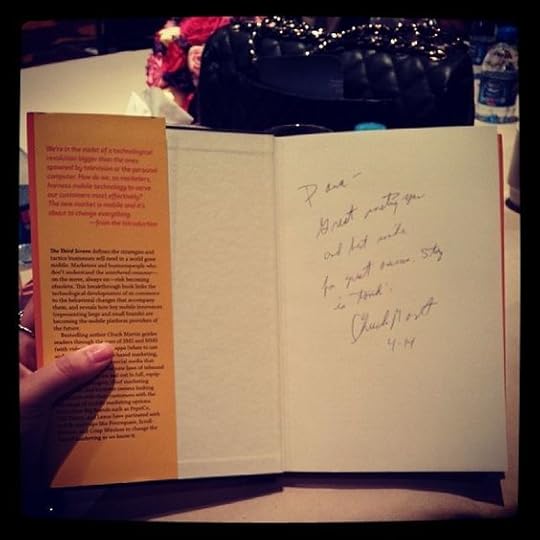 We're in the midst of a technological
revolution bigger than the ones
spawned by television or the personal
computer. How do we, as marketers,
harness mobile technology to serve
our customers most effectively?
The new market is mobile and it's
about to change everything.
—from the Introduction
The Third Screen defines the strategies and
tactics businesses will need in a world gone
mobile. Marketers and businesspeople who
don't understand the untethered consumer—
on the move, always on—risk becoming
obsolete. This breakthrough book links the
technological development of m-commerce
to the behavioral changes that accompany
them, and reveals how key mobile innovators
(representing large and small brands) are
becoming the mobile platform providers of
the future.
Bestselling author Chuck Martin guides
readers through the uses of SMS and MMS
based marketing,
social media that
new laws of inbound
marketing
looking
with their customers with the
of mobile marketing options
brands such as PepsiCo,
have partnered with
like Foursquare,
and Crisp Wireless to change the
marketing as we know it.
Great meeting you
and best wishes
for great success. Stay
in touch.
Chuck Martin
4-14